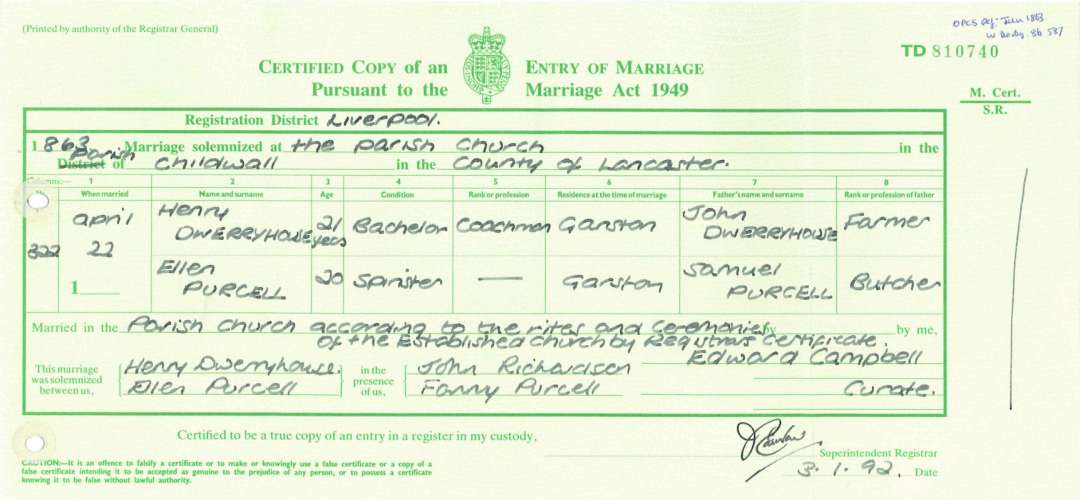 (Printed by authority of the Registrar General)
OPCS Ref: Jun 1863
W Derby 8b 537
TD 810740
CERTIFIED COPY of an ENTRY OF MARRIAGE
Pursuant to the Marriage Act 1949
M. Cert.
S.R.
Registration District Liverpool.
1863 Marriage solemnized at the parish church in the
District Parish of Childwall in the County of Lancaster.
Columns:— 1 2 3 4 5 6 7 8
No. When married Name and surname Age Condition Rank or profession Residence at the time of marriage Father's name and surname Rank or profession of father
322 April 22 Henry DWERRYHOUSE 21 years Bachelor Coachman Garston John DWERRYHOUSE Farmer
1 Ellen PURCELL 20 Spinster — Garston Samuel PURCELL Butcher
Married in the Parish Church according to the rites and Ceremonies by by me,
of the Established Church by Registrars Certificate.
This marriage was solemnized between us, Henry Dwerryhouse. Ellen Purcell in the presence of us, John Richardson Fanny Purcell Edward Campbell Curate.
Certified to be a true copy of an entry in a register in my custody,
Superintendent Registrar
3. 1. 92. Date
CAUTION:—It is an offence to falsify a certificate or to make or knowingly use a false certificate or a copy of a
false certificate intending it to be accepted as genuine to the prejudice of any person, or to possess a certificate
knowing it to be false without lawful authority.